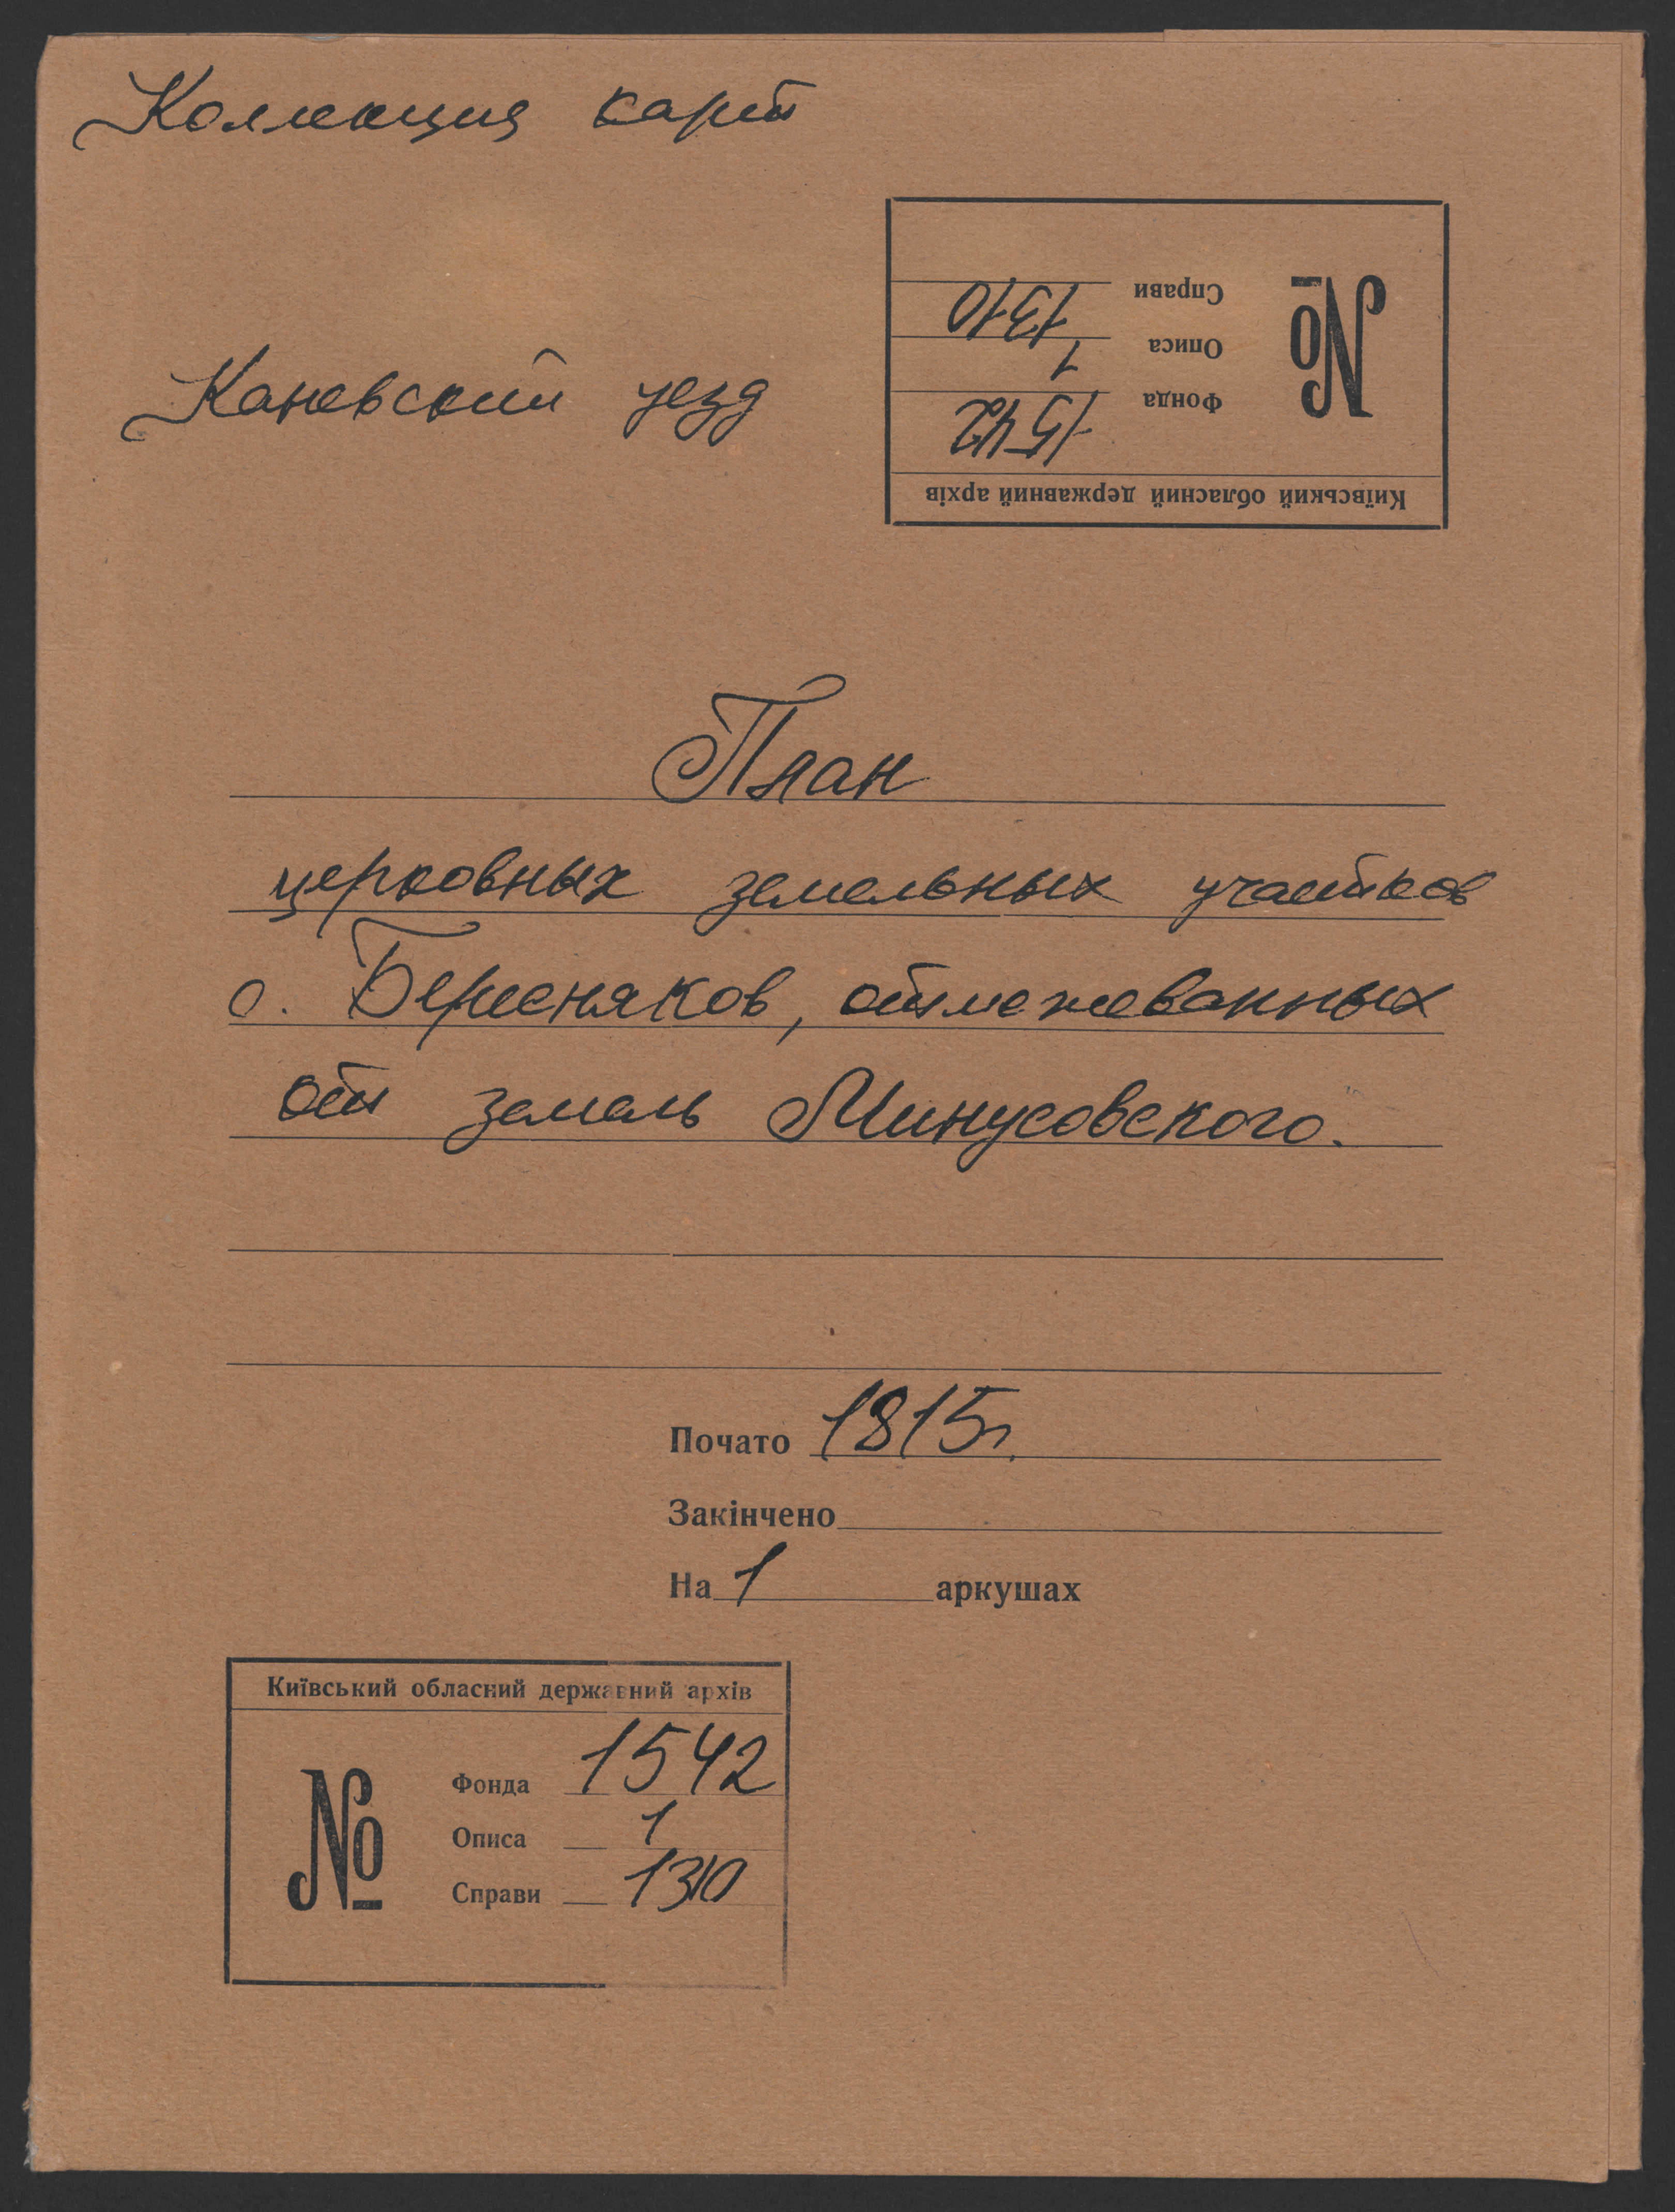 Коллекция карт
Справи 1310
Описа 1
Фонда 1542
Київський обласний державний архів
№
Каневский уезд
План
церковных земельных участков
с. Береняков, отмежеванных
от земель Минусовского.
Почато 1815г.
Закінчено
На 1 аркушах
Київський обласний державний архів
№
Фонда 1542
Описа 1
Справи 1310